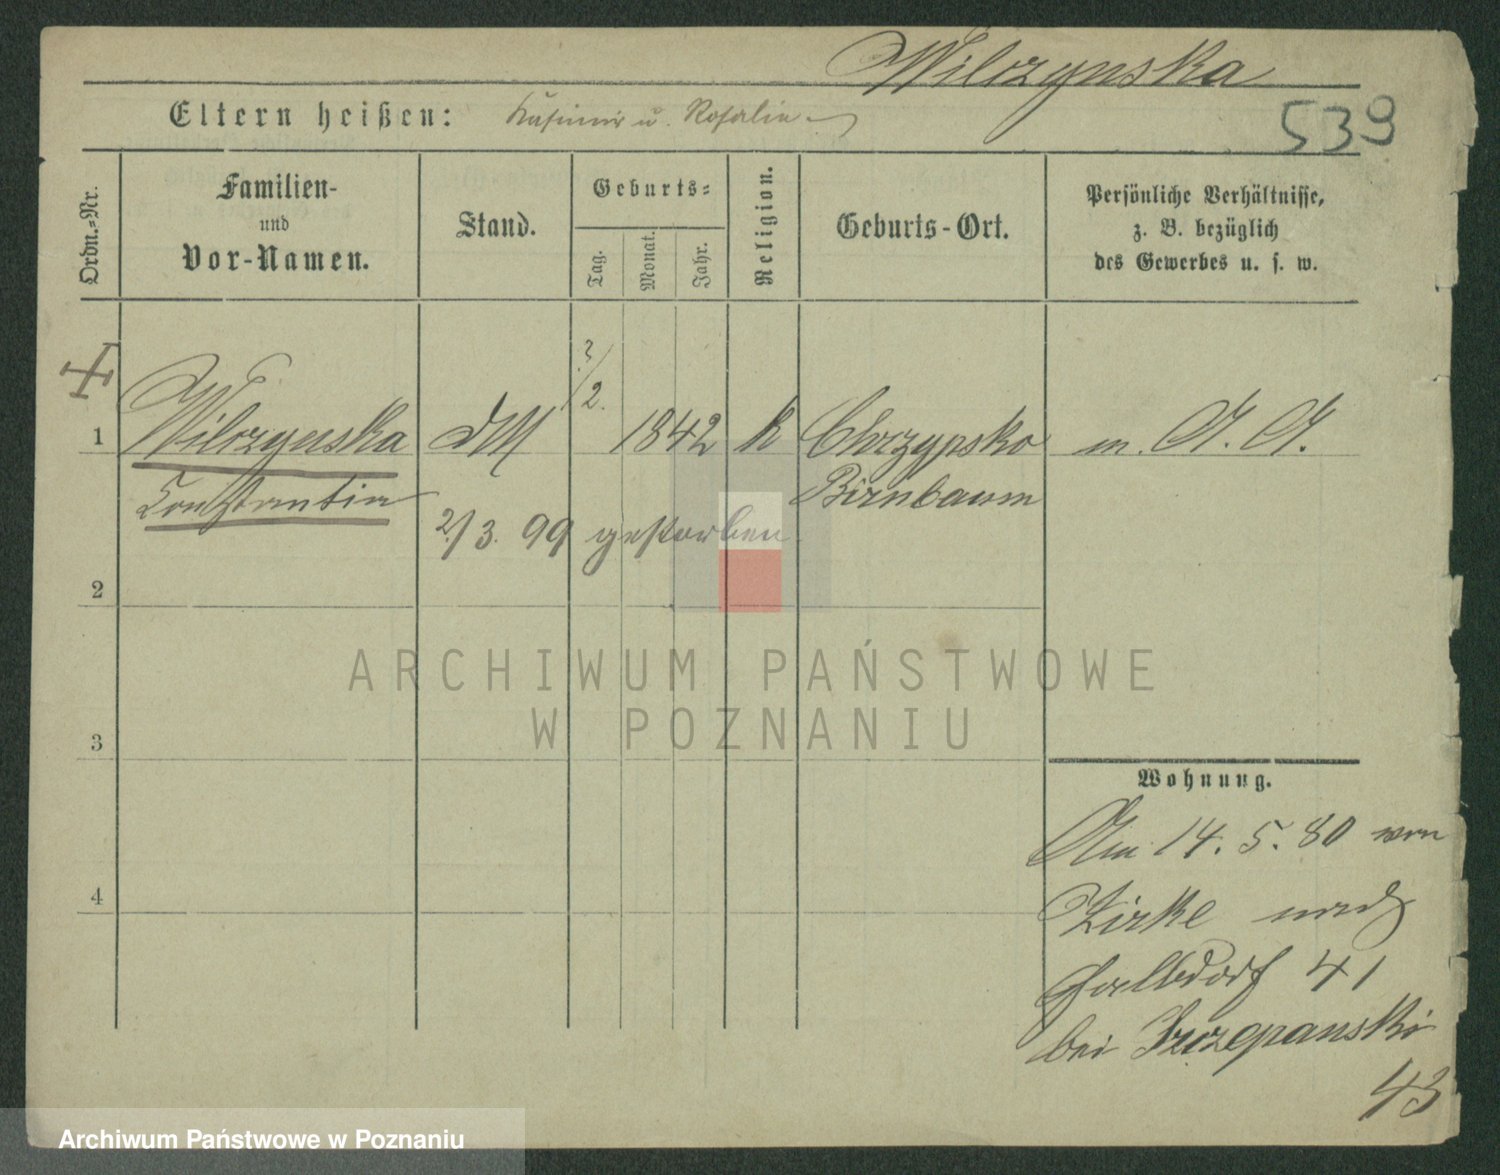 Wilczynska
539
Eltern heißen: Kasimir u. Rosalie
Ordn.-Nr.
Familien-
und
Vor-Namen.
Stand.
Geburts-
Tag.
Monat.
Jahr.
Religion.
Geburts-Ort.
Persönliche Verhältnisse,
z. B. bezüglich
des Gewerbes u. s. w.
1 Wilczynska dM 2/2. 1842 k Chrzypsko m. A. A.
Constantia Birnbaum
2/3. 99 gestorben.
2
3
4
Wohnung.
Am 14. 5. 80 von
Zirke nach
Halbdorf 41
bei Szczepanski
43
ARCHIWUM PAŃSTWOWE
W POZNANIU
Archiwum Państwowe w Poznaniu